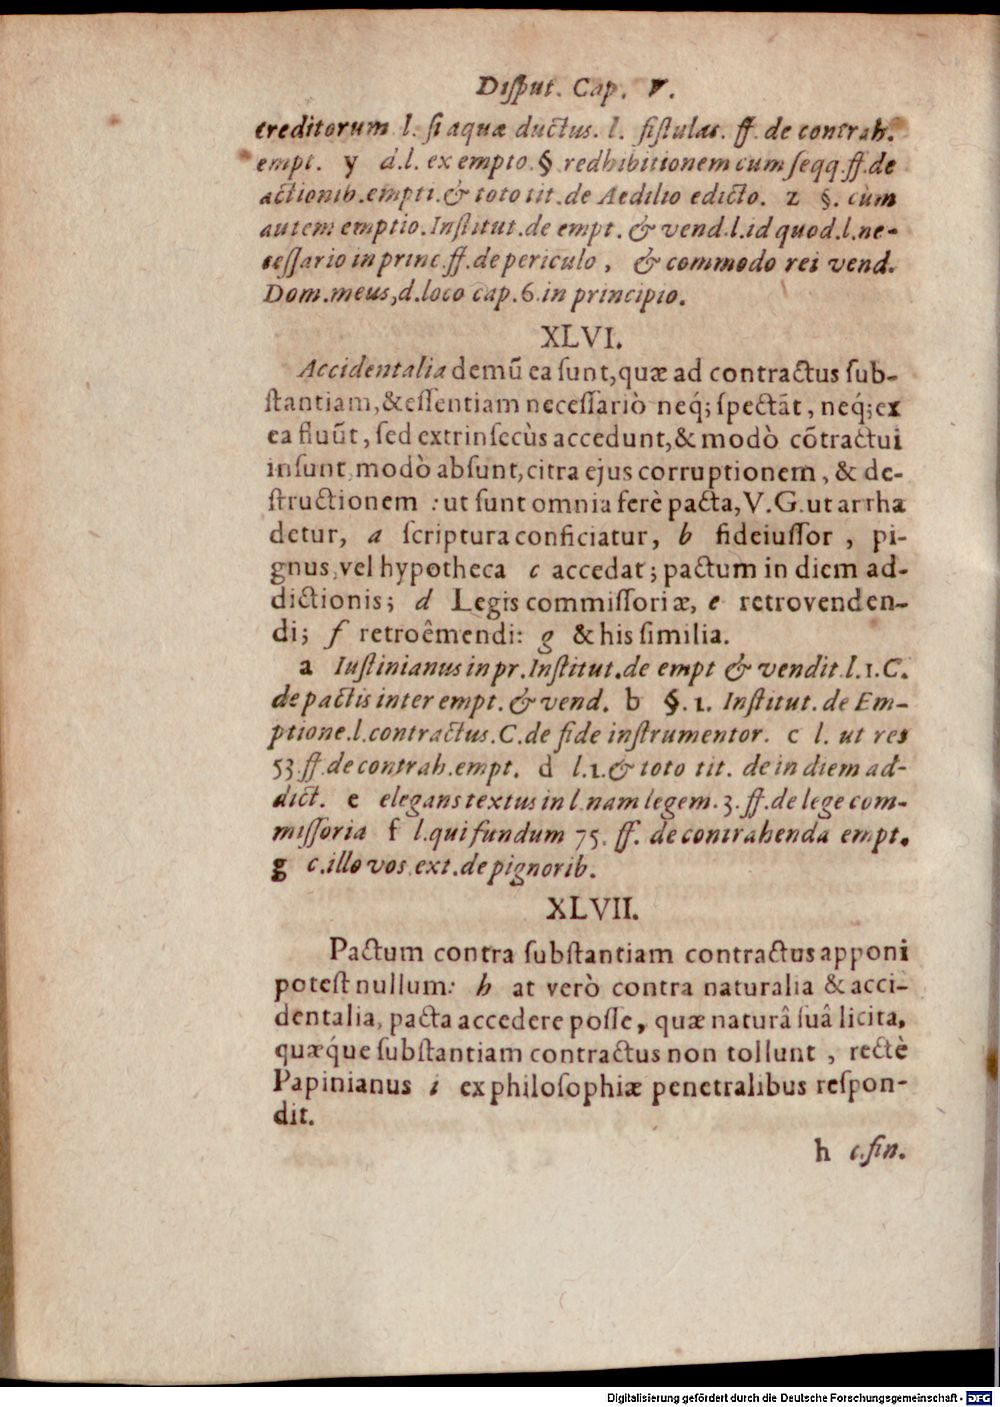 Disput. Cap. V.
creditorum l. si aquæ ductus. l. fistulas. ff. de contrah.
empt. y d.l. ex empto.§ redhibitionem cum seqq.ff.de
actionib.empti.& toto tit.de Aedilio edicto. z §. cùm
autem emptio.Institut.de empt. & vend.l.id quod.l.ne-
cessario in princ.ff.de periculo, & commodo rei vend.
Dom.meus,d.loco cap.6.in principio.
XLVI.
Accidentalia demũ ea sunt,quæ ad contractus sub-
stantiam,&essentiam necessariò neq́; spectãt, neq́;ex
ea fluũt, sed extrinsecùs accedunt,& modò cõtractui
insunt,modò absunt,citra ejus corruptionem, & de-
structionem : ut sunt omnia ferè pacta,V.G.ut arrha
detur, a scriptura conficiatur, b fideiussor, pi-
gnus,vel hypotheca c accedat; pactum in diem ad-
dictionis; d Legis commissoriæ, e retrovenden-
di; f retroêmendi: g & his similia.
a Iustinianus in pr.Institut.de empt & vendit.l.1.C.
de pactis inter empt.& vend. b §.1. Institut. de Em-
ptione.l.contractus.C.de fide instrumentor. c l. ut res
53.ff.de contrah.empt. d l.1.& toto tit. de in diem ad-
dict. e elegans textus in l.nam legem.3.ff.de lege com-
missoria f l.qui fundum 75. ff. de contrahenda empt.
g c.illo vos.ext.de pignorib.
XLVII.
Pactum contra substantiam contractus apponi
potest nullum: h at verò contra naturalia & acci-
dentalia, pacta accedere posse, quæ naturâ suâ licita,
quæq́ue substantiam contractus non tollunt, rectè
Papinianus i ex philosophiæ penetralibus respon-
dit.
h c.fin.
Digitalisierung gefördert durch die Deutsche Forschungsgemeinschaft - DFG